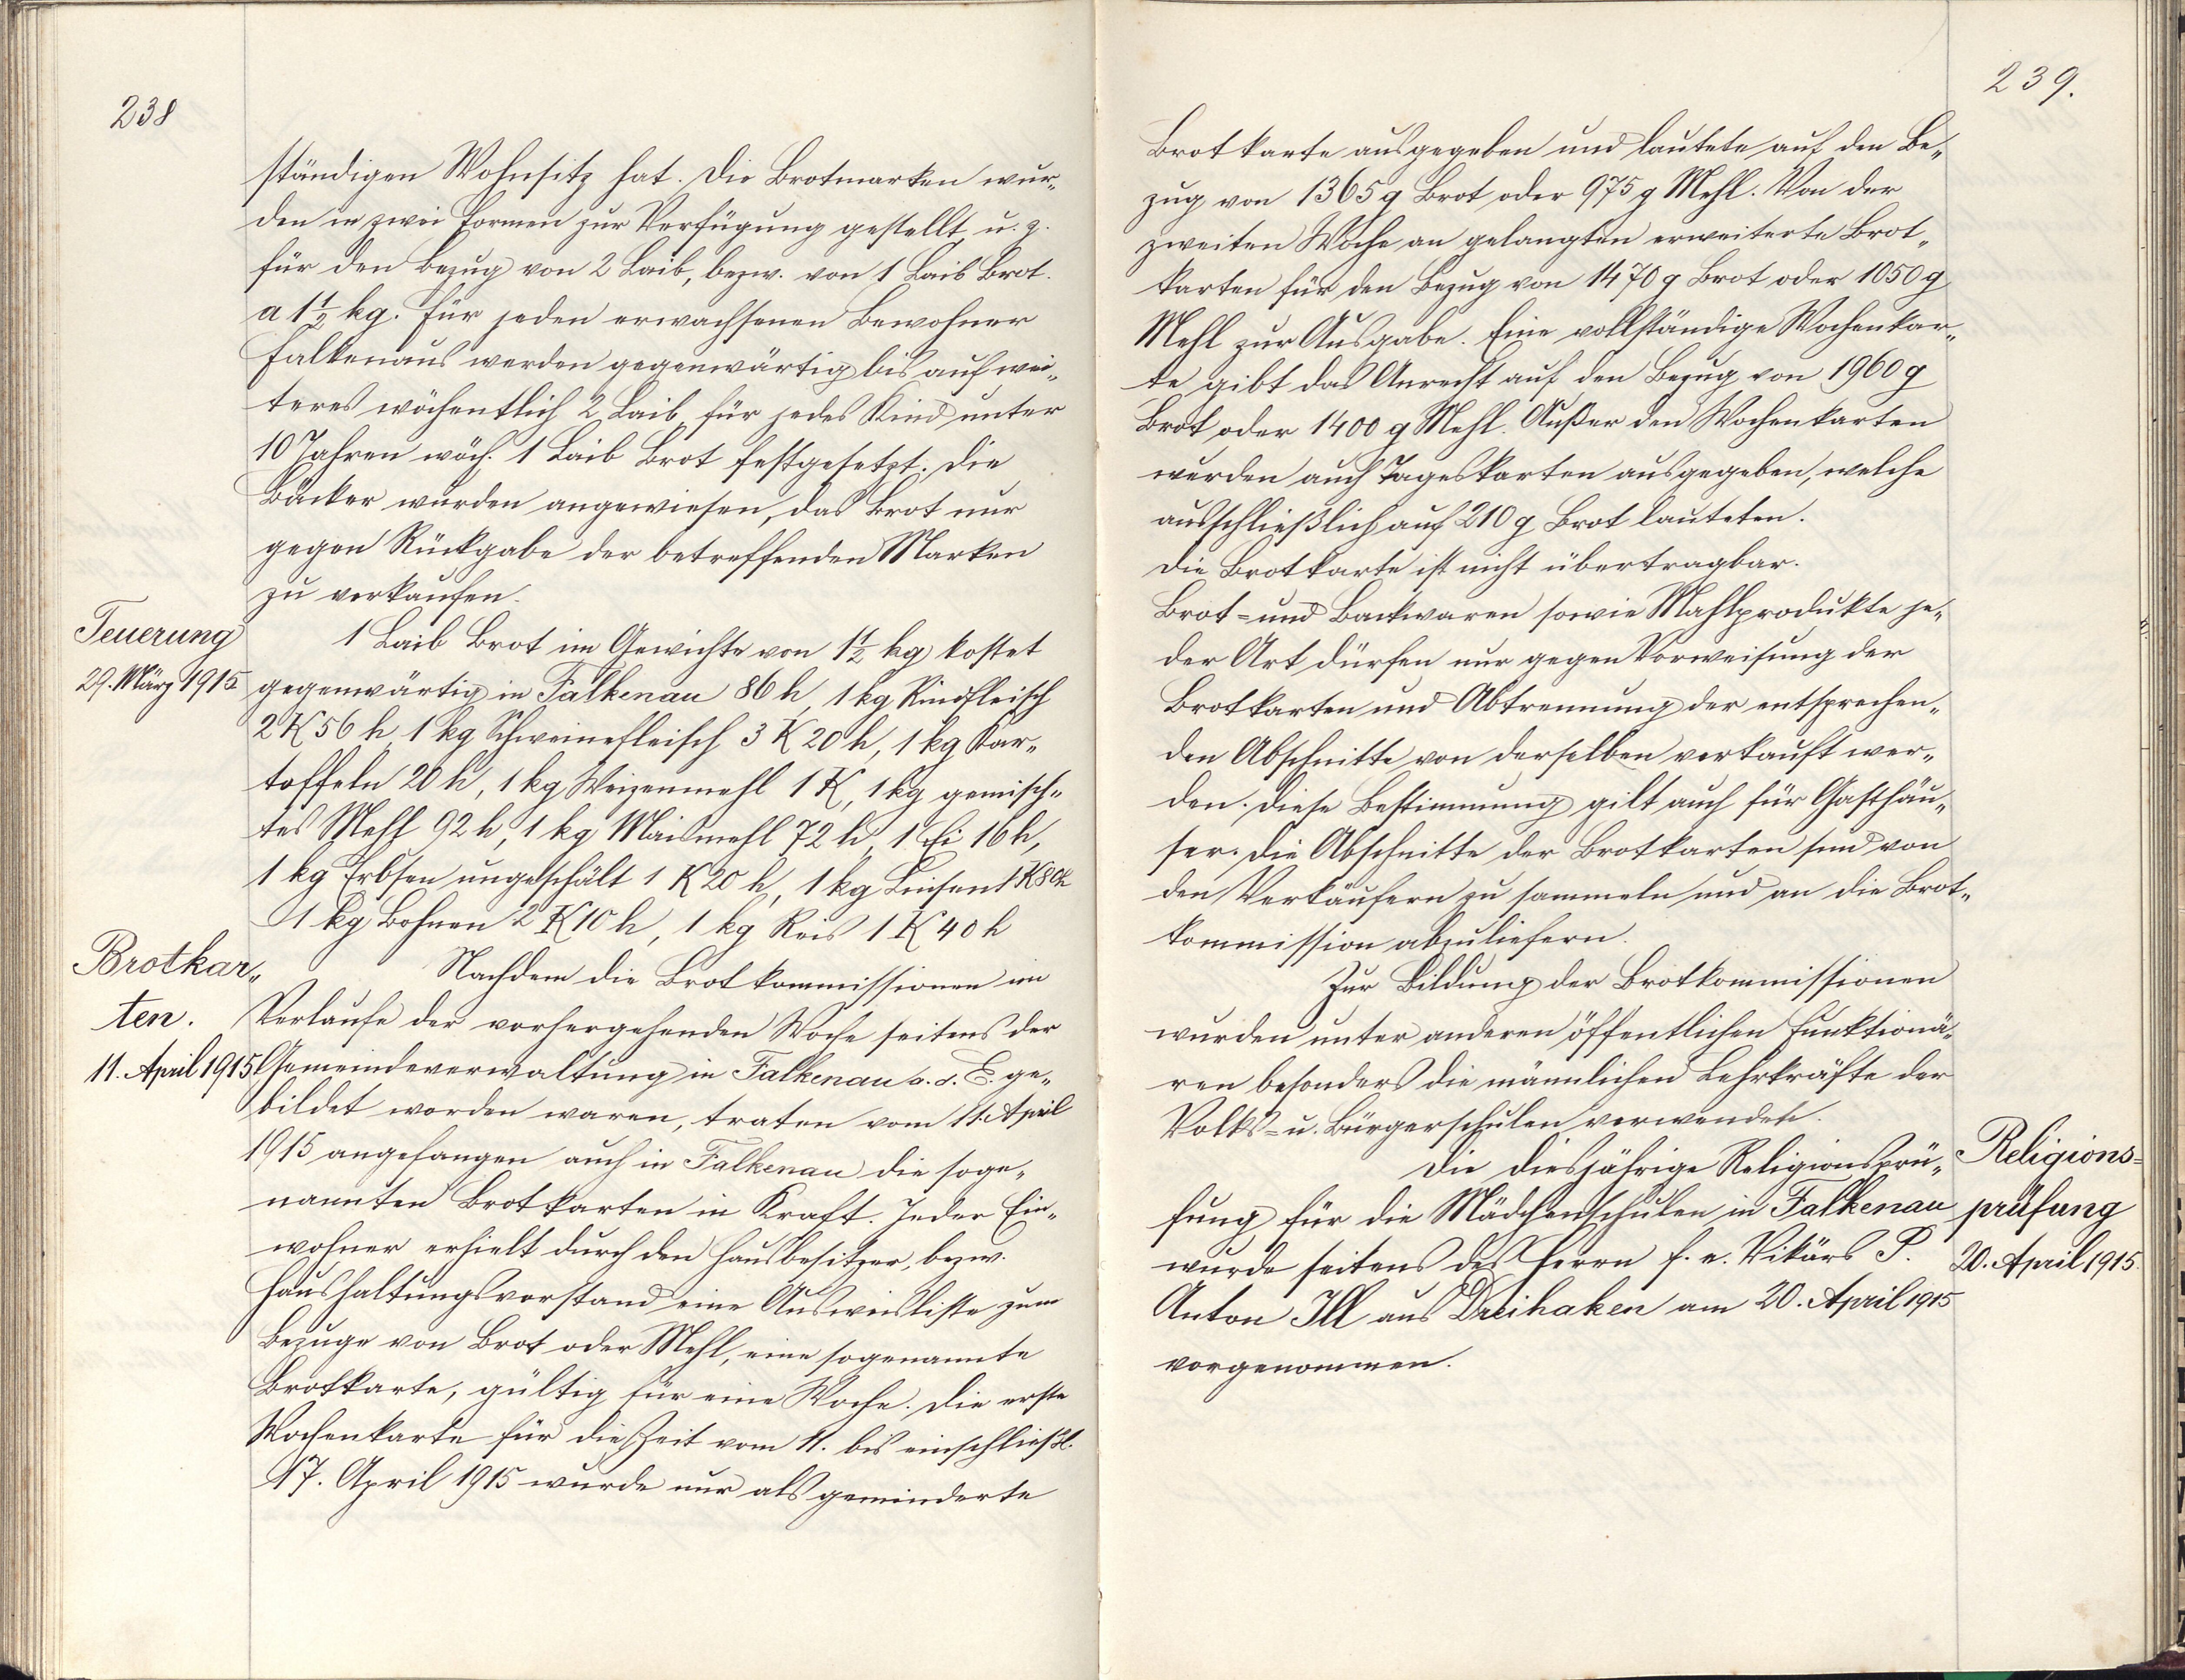 238
ständigen Wohnsitz hat. Die Brotmarken wur„
den in zwei Formen zur Verfügung gestellt u. z.
für den Bezug von 2 Laib, bezw. von 1 Laib Brot.
a 1½ kg. Für jeden erwachsenen Bewohner
Falkenaus werden gegenwärtig bis auf wei„
teres wöchentlich 2 Laib, für jedes Kind unter
10 Jahren wöch. 1 Laib Brot festgesetzt. Die
Bäcker wurden angewiesen, das Brot nur
gegen Rückgabe der betreffenden Marken
zu verkaufen.
Teuerung
29. März 1915
1 Laib Brot im Gewichte von 1½ kg kostet
gegenwärtig in Falkenau 86 h, 1 kg Rindfleisch
2 K 56 h, 1 kg Schweinefleisch 3 K 20 h, 1 kg Kar„
toffeln 20 h, 1 kg Weizenmehl 1 K, 1 kg gemisch„
tes Mehl 92 h, 1 kg Maismehl 72 h, 1 Ei 16 h,
1 kg Erbsen ungeschält 1 K 20 h, 1 kg Linsen 1 K 80 h
1 kg Bohnen 2 K 10 h, 1 kg Reis 1 K 40 h
Brotkar„
ten.
11. April 1915
Nachdem die Brotkommissionen im
Verlaufe der vorhergehenden Woche seitens der
Gemeindeverwaltung in Falkenau a. d. E. ge„
bildet worden waren, traten vom 11. April
1915 angefangen auch in Falkenau die soge„
nannten Brotkarten in Kraft. Jeder Ein„
wohner erhielt durch den Hausbesitzer, bezw.
Haushaltungsvorstand eine Ausweisliste zum
Bezuge von Brot oder Mehl, eine sogenannte
Brotkarte, gültig für eine Woche. Die erste
Wochenkarte für die Zeit vom 11. bis einschließl.
17. April 1915 wurde nur als geminderte
239.
Brotkarte ausgegeben und lautete auf den Be„
zug von 1365 g Brot oder 975 g Mehl. Von der
zweiten Woche an gelangten erweiterte Brot„
karten für den Bezug von 1470 g Brot oder 1050 g
Mehl zur Ausgabe. Eine vollständige Wochenkar„
te gibt das Anrecht auf den Bezug von 1960 g
Brot oder 1400 g Mehl. Außer den Wochenkarten
wurden auch Tageskarten ausgegeben, welche
ausschließlich auf 210 g Brot lauteten.
Die Brotkarte ist nicht übertragbar.
Brot= und Backwaren sowie Mahlprodukte je„
der Art dürfen nur gegen Vorweisung der
Brotkarten und Abtrennung der entsprechen„
den Abschnitte von derselben verkauft wer„
den. Diese Bestimmung gilt auch für Gasthäu„
ser. Die Abschnitte der Brotkarten sind von
den Verkäufern zu sammeln und an die Brot„
kommission abzuliefern.
Zur Bildung der Brotkommissionen
wurden unter anderen öffentlichen Funktionä„
ren besonders die männlichen Lehrkräfte der
Volks= u. Bürgerschulen verwendet.
Religions=
prüfung
20. April 1915.
Die diesjährige Religionsprü„
fung für die Mädchenschulen in Falkenau
wurde seitens des Herrn f. e. Vikärs P.
Anton Ill aus Dreihaken am 20. April 1915
vorgenommen.